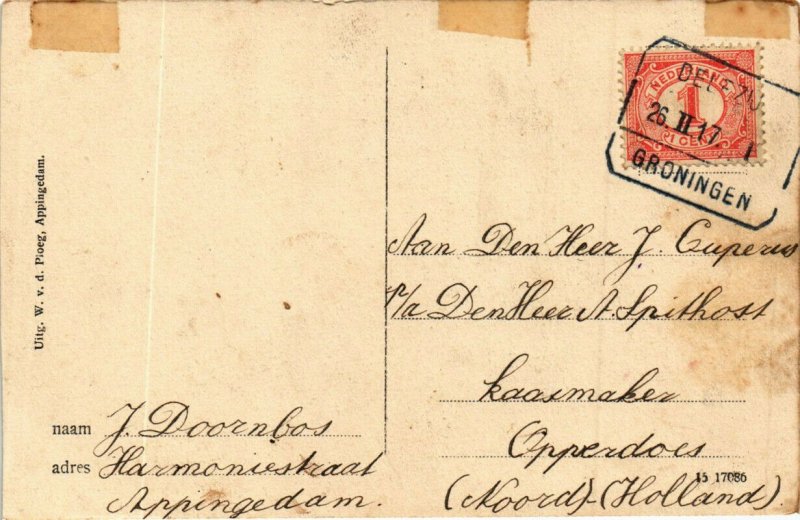 Uitg. W. v. d. Ploeg, Appingedam.
NEDERLAND
1
1 CENT
DELFZIJL
26 II 17
GRONINGEN
Aan Den Heer J. Cuperus
P/a Den Heer A. Spithost
kaasmaker
Opperdoes
(Noord)-(Holland)
15 17086
naam J. Doornbos
adres Harmoniestraat
Appingedam.